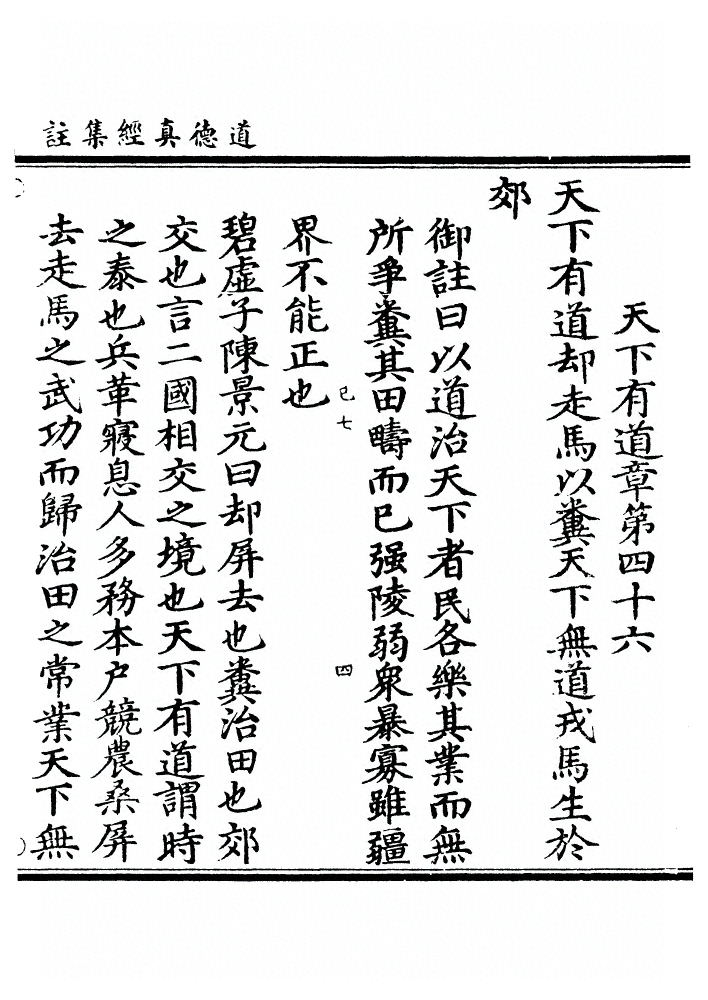 道德真經集註
天下有道章第四十六
天下有道却走馬以糞天下無道戎馬生於
郊
御註曰以道治天下者民各樂其業而無
所爭糞其田疇而已强陵弱衆暴寡雖疆
界不能正也
己七
四
碧虛子陳景元曰却屏去也糞治田也郊
交也言二國相交之境也天下有道謂時
之泰也兵革寢息人多務本户競農桑屏
去走馬之武功而歸治田之常業天下無